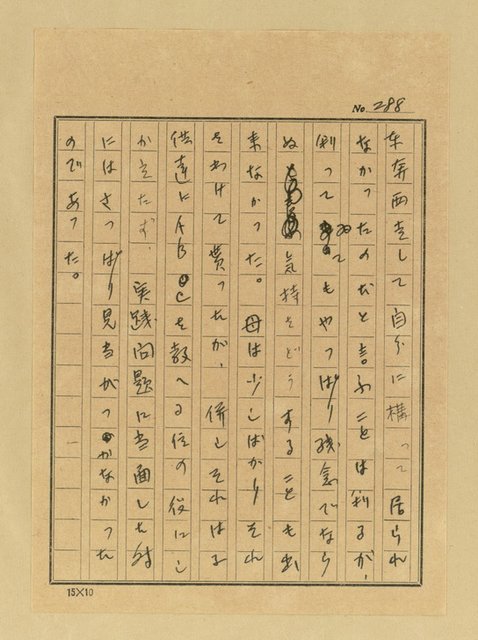 No. 288
東奔西走して自分に構って居られ
なかったのだと言ふことは判るが、
判ってゐてもやっぱり残念でなら
ぬ気持をどうすることも出
来なかった。母は少しばかりそれ
をわけて貰ったが、併しそれは子
供達にABCを教へる位の役にし
かたたず、実践問題に当面した時
にはさっぱり見当がつかなかった
のであった。
15×10